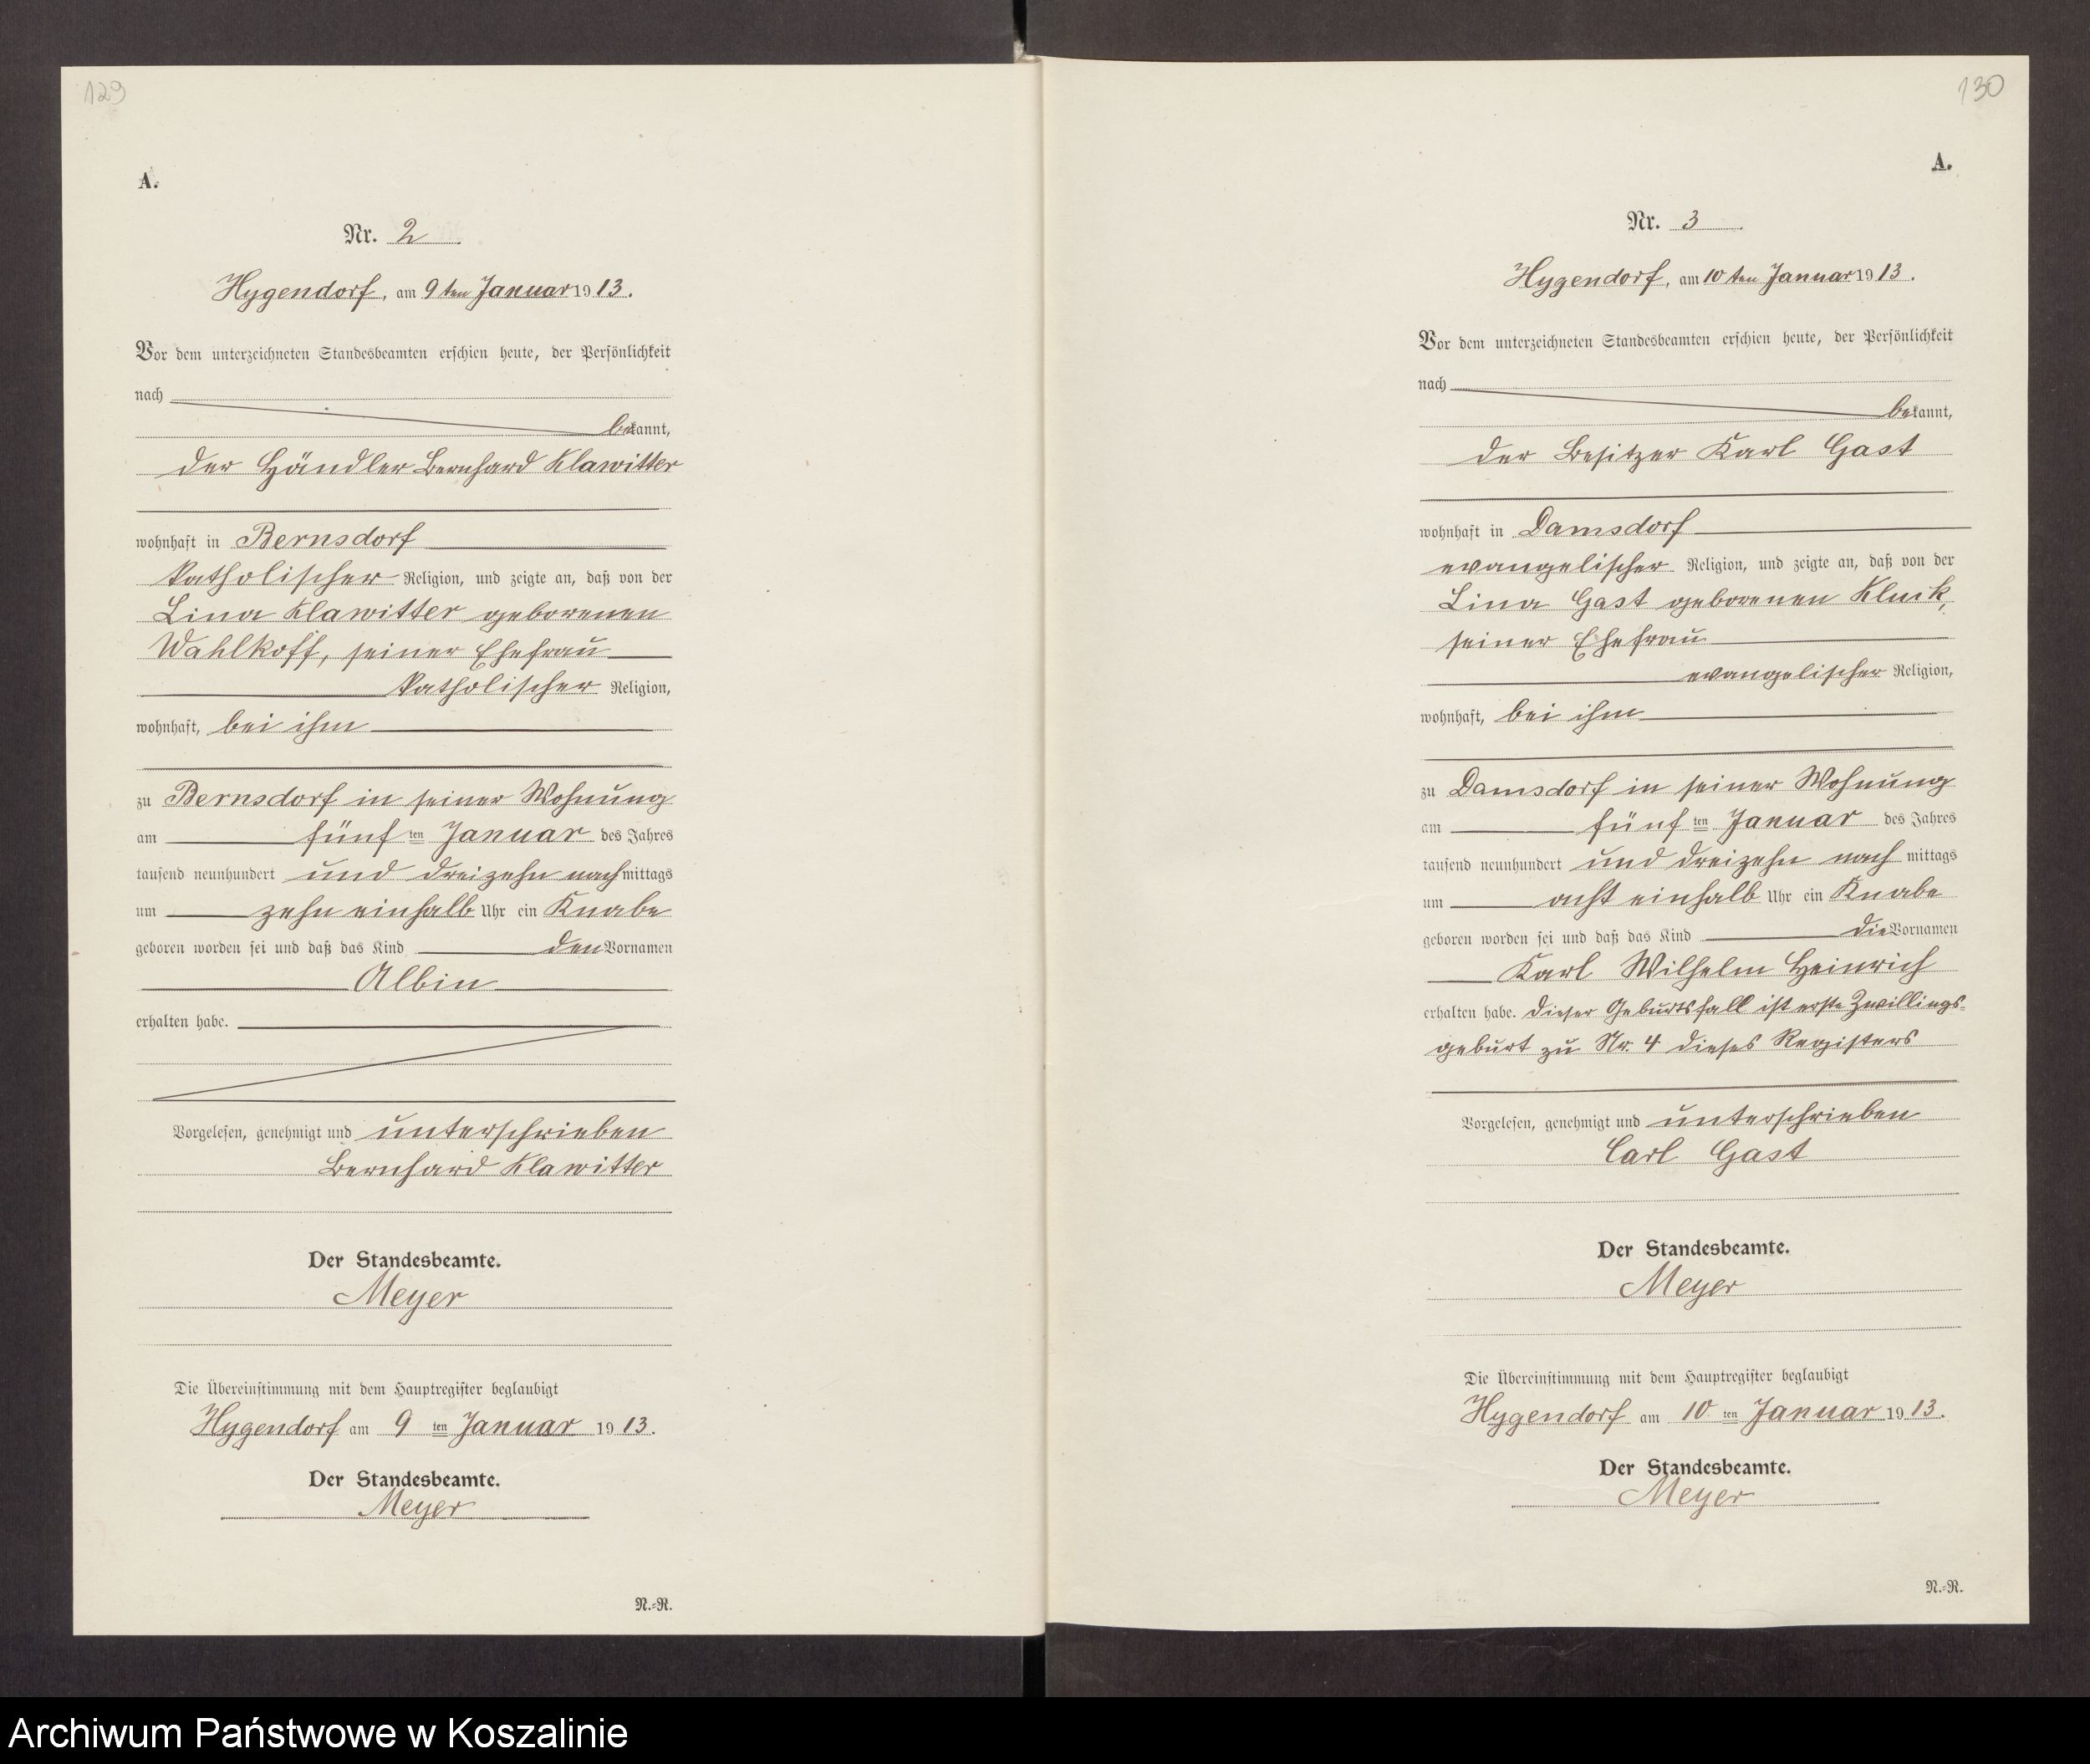 129
A.
Nr. 2
Hygendorf, am 9ten Januar 1913.
Vor dem unterzeichneten Standesbeamten erschien heute, der Persönlichkeit
nach
bekannt,
der Händler Bernhard Klawitter
wohnhaft in Bernsdorf
katholischer Religion, und zeigte an, daß von der
Lina Klawitter geborenen
Wahlkoff, seiner Ehefrau
katholischer Religion,
wohnhaft, bei ihm
zu Bernsdorf in seiner Wohnung
am fünften Januar des Jahres
tausend neunhundert und dreizehn nachmittags
um zehn einhalb Uhr ein Knabe
geboren worden sei und daß das Kind den Vornamen
Albin
erhalten habe.
Vorgelesen, genehmigt und unterschrieben
Bernhard Klawitter
Der Standesbeamte.
Meyer
Die Übereinstimmung mit dem Hauptregister beglaubigt
Hygendorf am 9ten Januar 1913.
Der Standesbeamte.
Meyer
N.-R.
130
A.
Nr. 3
Hygendorf, am 10ten Januar 1913.
Vor dem unterzeichneten Standesbeamten erschien heute, der Persönlichkeit
nach
bekannt,
der Besitzer Karl Gast
wohnhaft in Damsdorf
evangelischer Religion, und zeigte an, daß von der
Lina Gast geborenen Kluck,
seiner Ehefrau
evangelischer Religion,
wohnhaft, bei ihm
zu Damsdorf in seiner Wohnung
am fünften Januar des Jahres
tausend neunhundert und dreizehn nachmittags
um acht einhalb Uhr ein Knabe
geboren worden sei und daß das Kind die Vornamen
Karl Wilhelm Heinrich
erhalten habe. Dieser Geburtsfall ist erste Zwillings-
geburt zu Nr. 4 dieses Registers
Vorgelesen, genehmigt und unterschrieben
Carl Gast
Der Standesbeamte.
Meyer
Die Übereinstimmung mit dem Hauptregister beglaubigt
Hygendorf am 10ten Januar 1913.
Der Standesbeamte.
Meyer
N.-R.
Archiwum Państwowe w Koszalinie